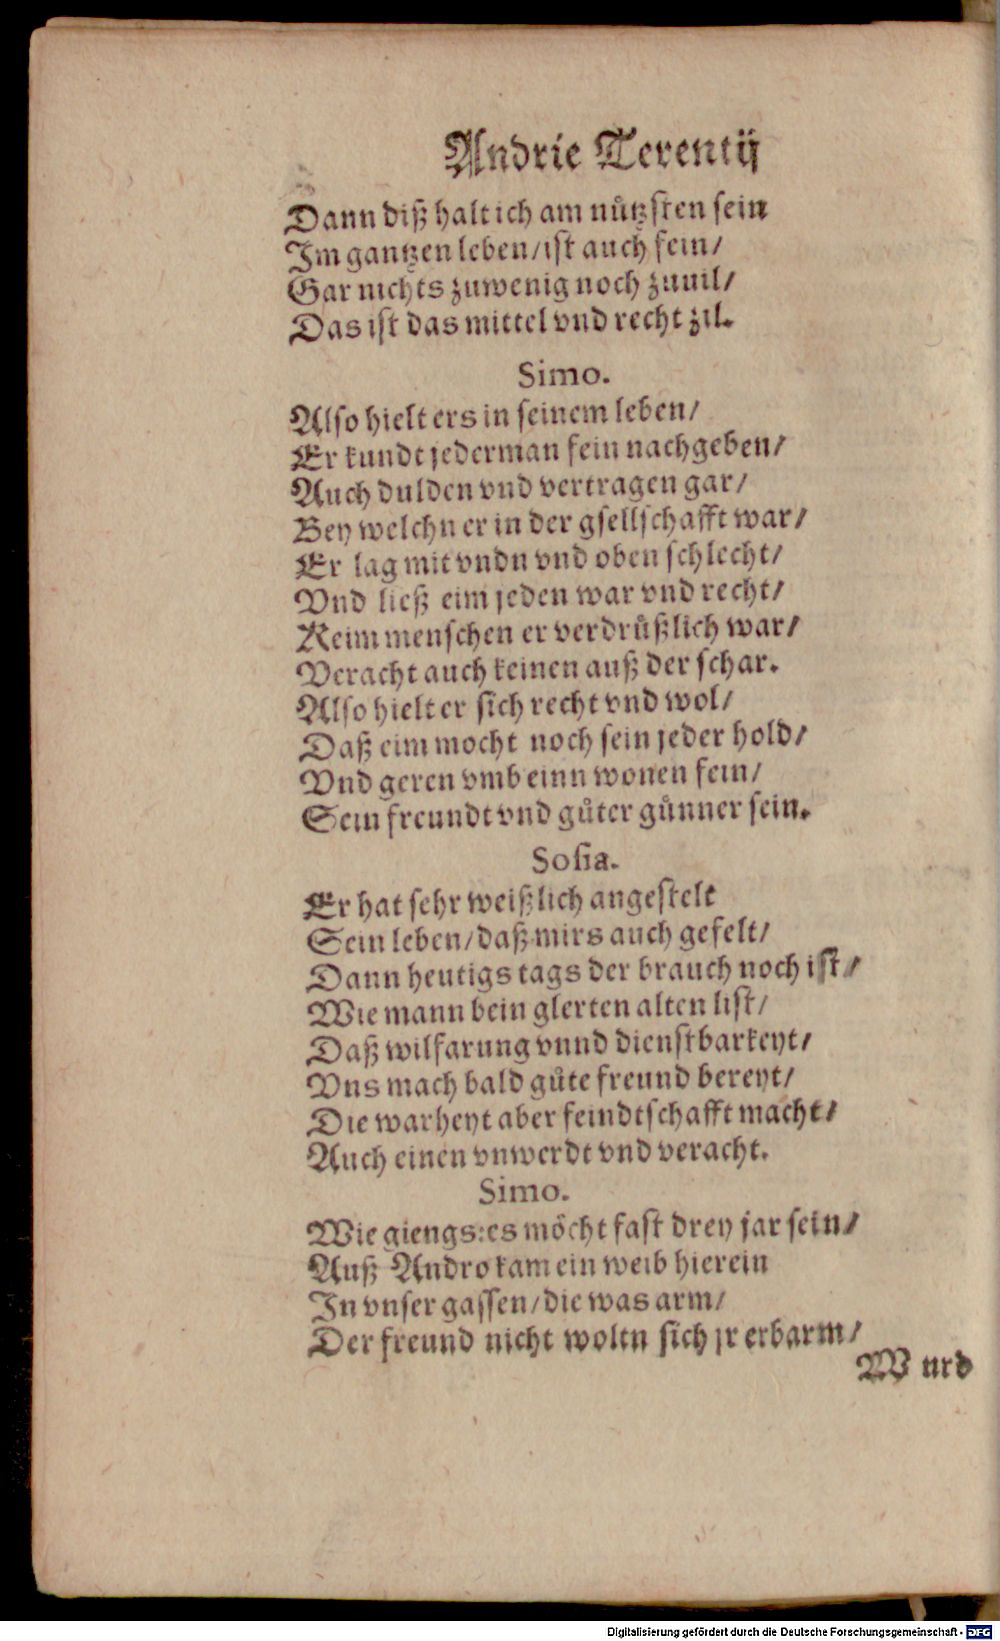 Andrie Terentij
Dann diß halt ich am nützsten sein
Im gantzen leben/ist auch fein/
Gar nichts zuwenig noch zuuil/
Das ist das mittel vnd recht zil.
Simo.
Also hielt ers in seinem leben/
Er kundt jederman fein nachgeben/
Auch dulden vnd vertragen gar/
Bey welchn er in der gsellschafft war/
Er lag mit vndn vnd oben schlecht/
Vnd ließ eim jeden war vnd recht/
Keim menschen er verdrüßlich war/
Veracht auch keinen auß der schar.
Also hielt er sich recht vnd wol/
Daß eim mocht noch sein jeder hold/
Vnd geren vmb einn wonen fein/
Sein freundt vnd gůter günner sein.
Sosia.
Er hat sehr weißlich angestelt
Sein leben/daß mirs auch gefelt/
Dann heutigs tags der brauch noch ist/
Wie mann bein glerten alten list/
Daß wilfarung vnnd dienstbarkeyt/
Vns mach bald gůte freund bereyt/
Die warheyt aber feindtschafft macht/
Auch einen vnwerdt vnd veracht.
Simo.
Wie giengs:es möcht fast drey jar sein/
Auß Andro kam ein weib hierein
In vnser gassen/die was arm/
Der freund nicht woltn sich jr erbarm/
Wurd
Digitalisierung gefördert durch die Deutsche Forschungsgemeinschaft - DFG